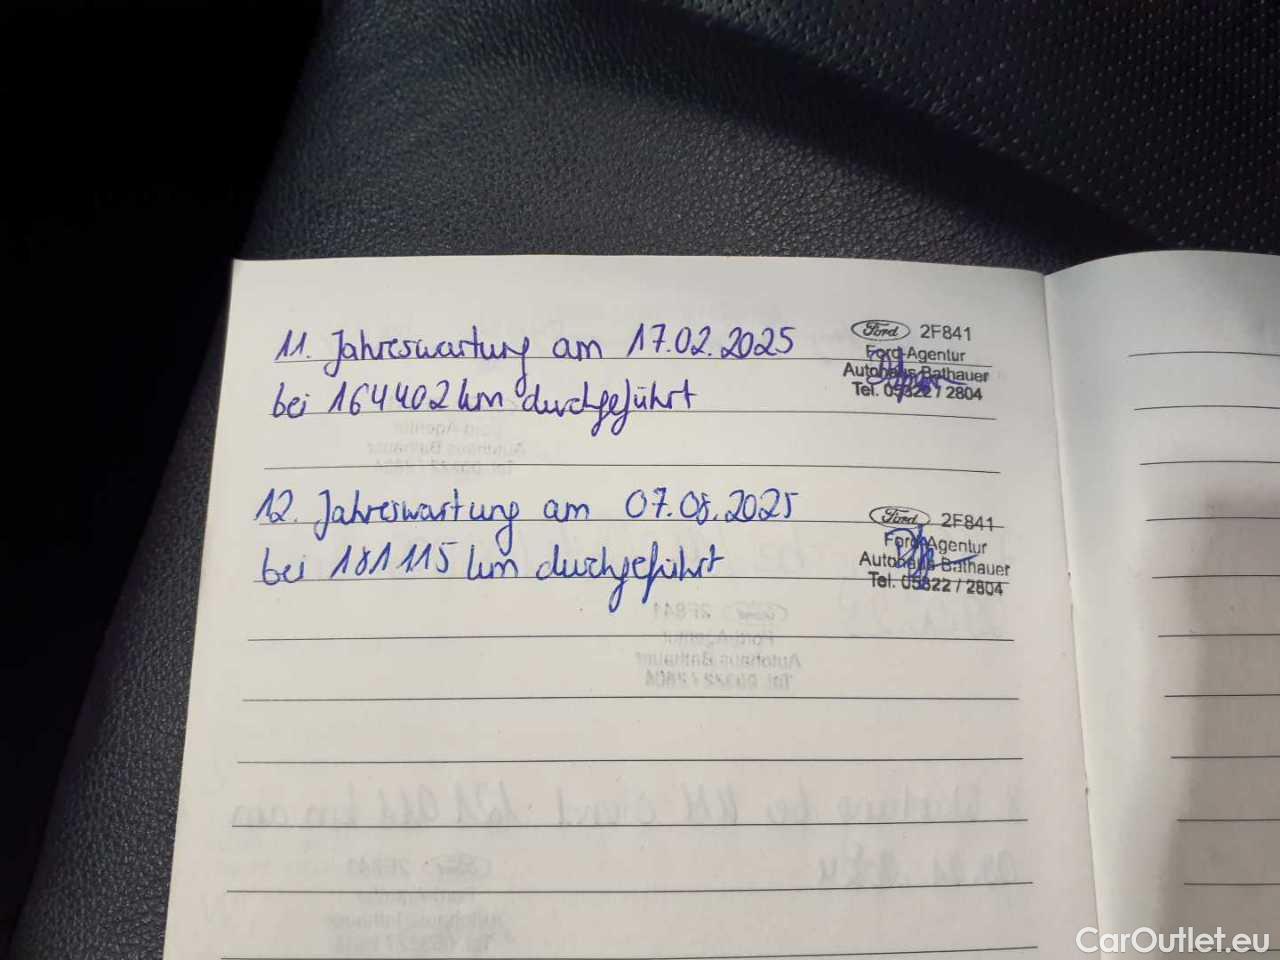 11. Jahreswartung am 17.02.2025
bei 164402 km durchgeführt
Ford 2F841
Ford-Agentur
Autohaus Bathauer
Tel. 05822 / 2804
12. Jahreswartung am 07.08.2025
bei 181115 km durchgeführt
Ford 2F841
Ford-Agentur
Autohaus Bathauer
Tel. 05822 / 2804
CarOutlet.eu